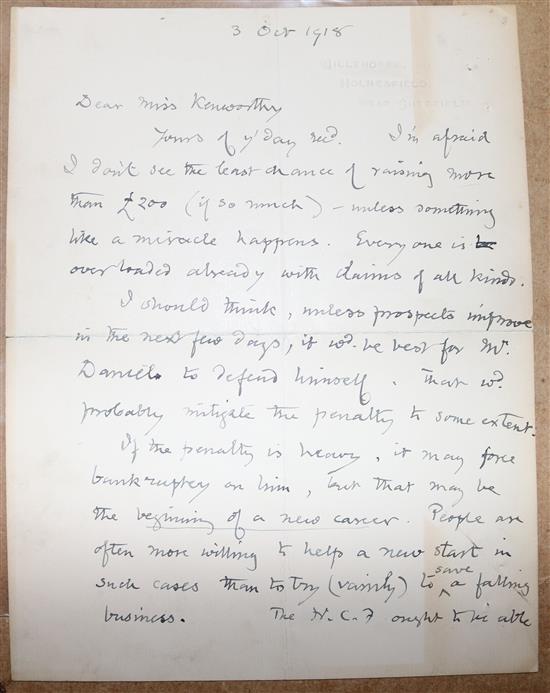 3 Oct 1918
MILLTHORPE,
HOLMESFIELD,
NEAR SHEFFIELD.
Dear Miss Kenworthy
Yours of y'day recd. I'm afraid
I don't see the least chance of raising more
than £200 (if so much) – unless something
like a miracle happens. Every one is
overloaded already with claims of all kinds.
I should think, unless prospects improve
in the next few days, it wd. be best for Mr.
Daniel to defend himself. That wd.
probably mitigate the penalty to some extent.
If the penalty is heavy, it may force
bankruptcy on him, but that may be
the beginning of a new career. People are
often more willing to help a new start in
such cases than to try (vainly) to save a falling
business. The N.C.F ought to be able